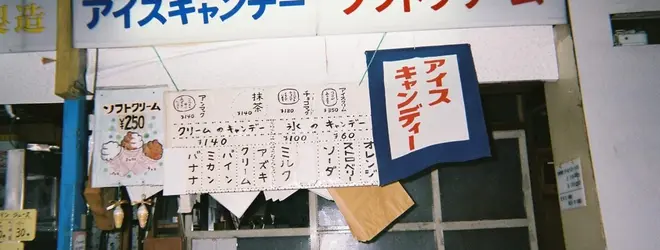 製造
アイスキャンデー
ソフトクリーム
ソフトクリーム
¥250
アイスクリーム
250
チョコマック
180
抹茶
140
アンマック
140
氷のキャンデー
60
100
クリームのキャンデー
140
オレンジ
ストロベリー
ソーダ
ミルク
アズキ
クリーム
パイン
ミカン
バナナ
アイス
キャンディー